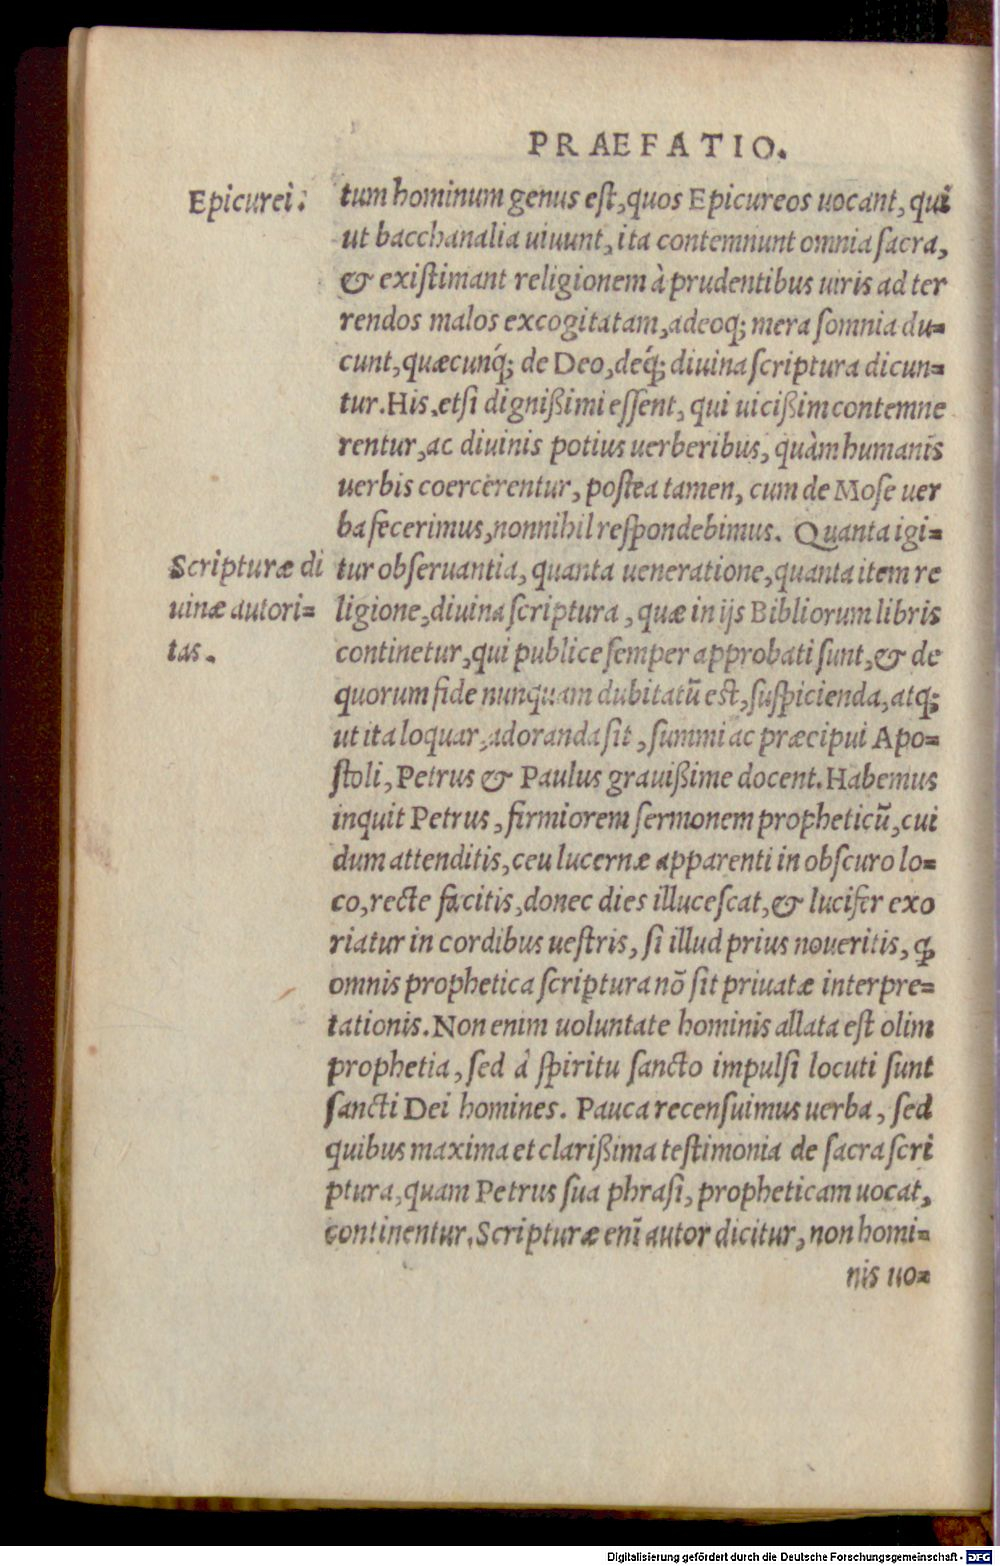 PRAEFATIO.
Epicurei.
tum hominum genus est, quos Epicureos uocant, qui
ut bacchanalia uiuunt, ita contemnunt omnia sacra,
& existimant religionem à prudentibus uiris ad ter
rendos malos excogitatam, adeoq; mera somnia du=
cunt, quæcunq́; de Deo, deq́; diuina scriptura dicun=
tur. His, etsi dignißimi essent, qui uicißim contemne
rentur, ac diuinis potius uerberibus, quàm humanis
uerbis coercerentur, postea tamen, cum de Mose uer
ba fecerimus, nonnihil respondebimus. Quanta igi=
Scripturæ di
uinæ autori=
tas.
tur obseruantia, quanta ueneratione, quanta item re
ligione, diuina scriptura, quæ in ijs Bibliorum libris
continetur, qui publice semper approbati sunt, & de
quorum fide nunquam dubitatũ est, suspicienda, atq;
ut ita loquar, adoranda sit, summi ac præcipui Apo=
stoli, Petrus & Paulus grauißime docent. Habemus
inquit Petrus, firmiorem sermonem propheticũ, cui
dum attenditis, ceu lucernæ apparenti in obscuro lo=
co, recte facitis, donec dies illucescat, & lucifer exo
riatur in cordibus uestris, si illud prius noueritis, ꝙ
omnis prophetica scriptura nõ sit priuatæ interpre=
tationis. Non enim uoluntate hominis allata est olim
prophetia, sed à spiritu sancto impulsi locuti sunt
sancti Dei homines. Pauca recensuimus uerba, sed
quibus maxima et clarißima testimonia de sacra scri
ptura, quam Petrus sua phrasi, propheticam uocat,
continentur. Scripturæ enĩ autor dicitur, non homi=
nis uo=
Digitalisierung gefördert durch die Deutsche Forschungsgemeinschaft - DFG